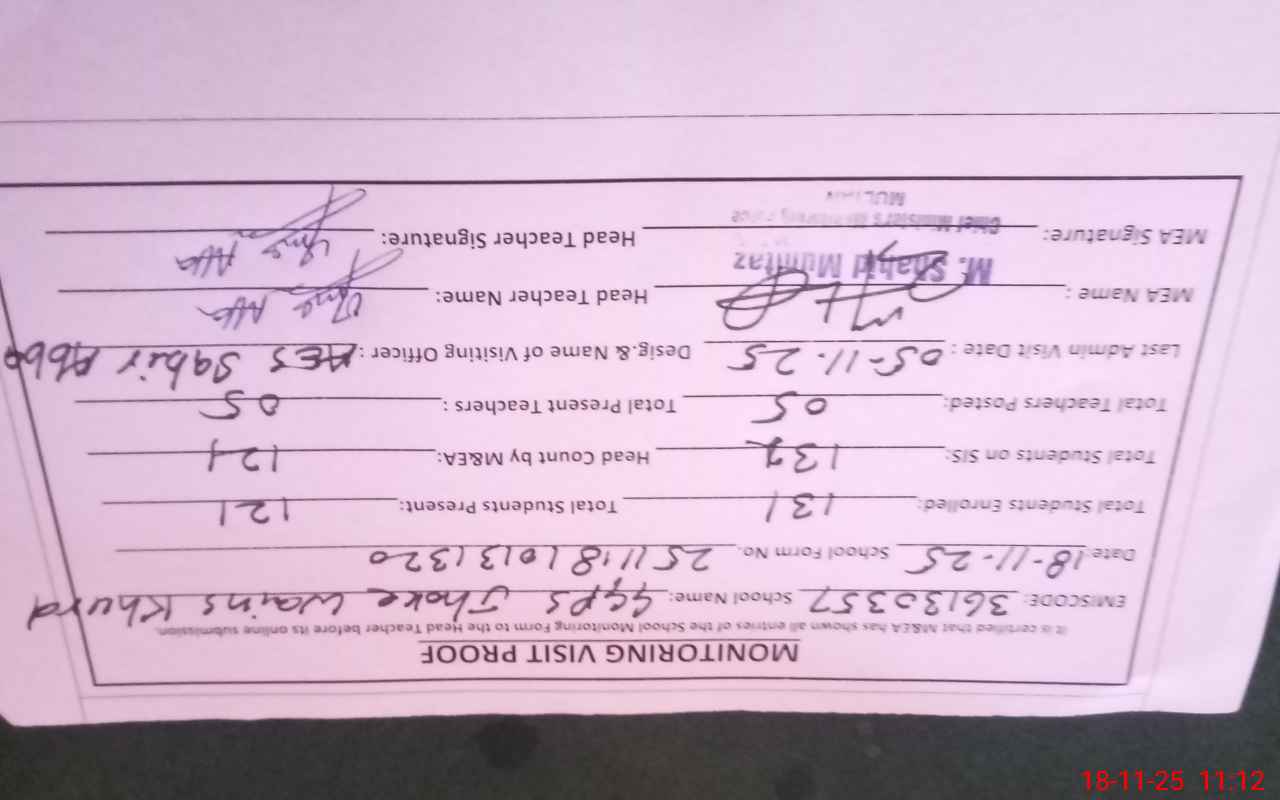 MONITORING VISIT PROOF
It is certified that M&EA has shown all entries of the School Monitoring Form to the Head Teacher before its online submission.
EMISCODE: 36130357 School Name: GGPS Jhoke Wains Khurd
Date: 18-11-25 School Form No. 25111810131320
Total Students Enrolled: 131 Total Students Present: 121
Total Students on SIS: 132 Head Count by M&EA: 121
Total Teachers Posted: 05 Total Present Teachers: 05
Last Admin Visit Date: 05-11-25 Desig.& Name of Visiting Officer: AES Sabir Abba
MEA Name: M. Shahid Mumtaz Head Teacher Name:
MEA Signature: Chief Minister's Monitoring Force Head Teacher Signature:
MULTAN
18-11-25 11:12